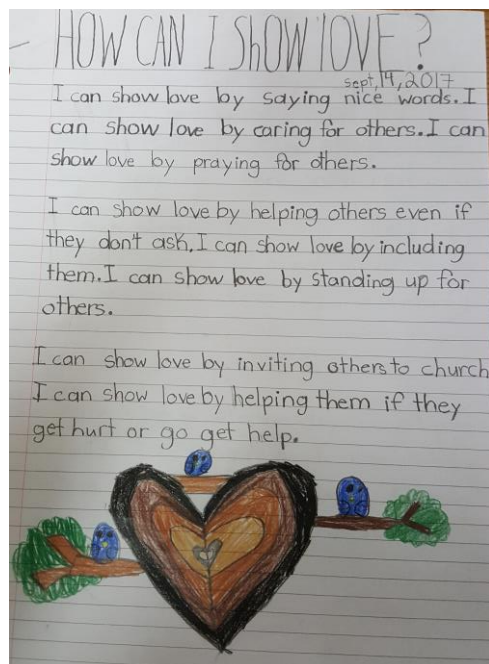 HOW CAN I ShOW lOVE?
sept, 14, 2017
I can show love by saying nice words. I
can show love by caring for others. I can
show love by praying for others.
I can show love by helping others even if
they don't ask. I can show love by including
them. I can show love by standing up for
others.
I can show love by inviting others to church
I can show love by helping them if they
get hurt or go get help.